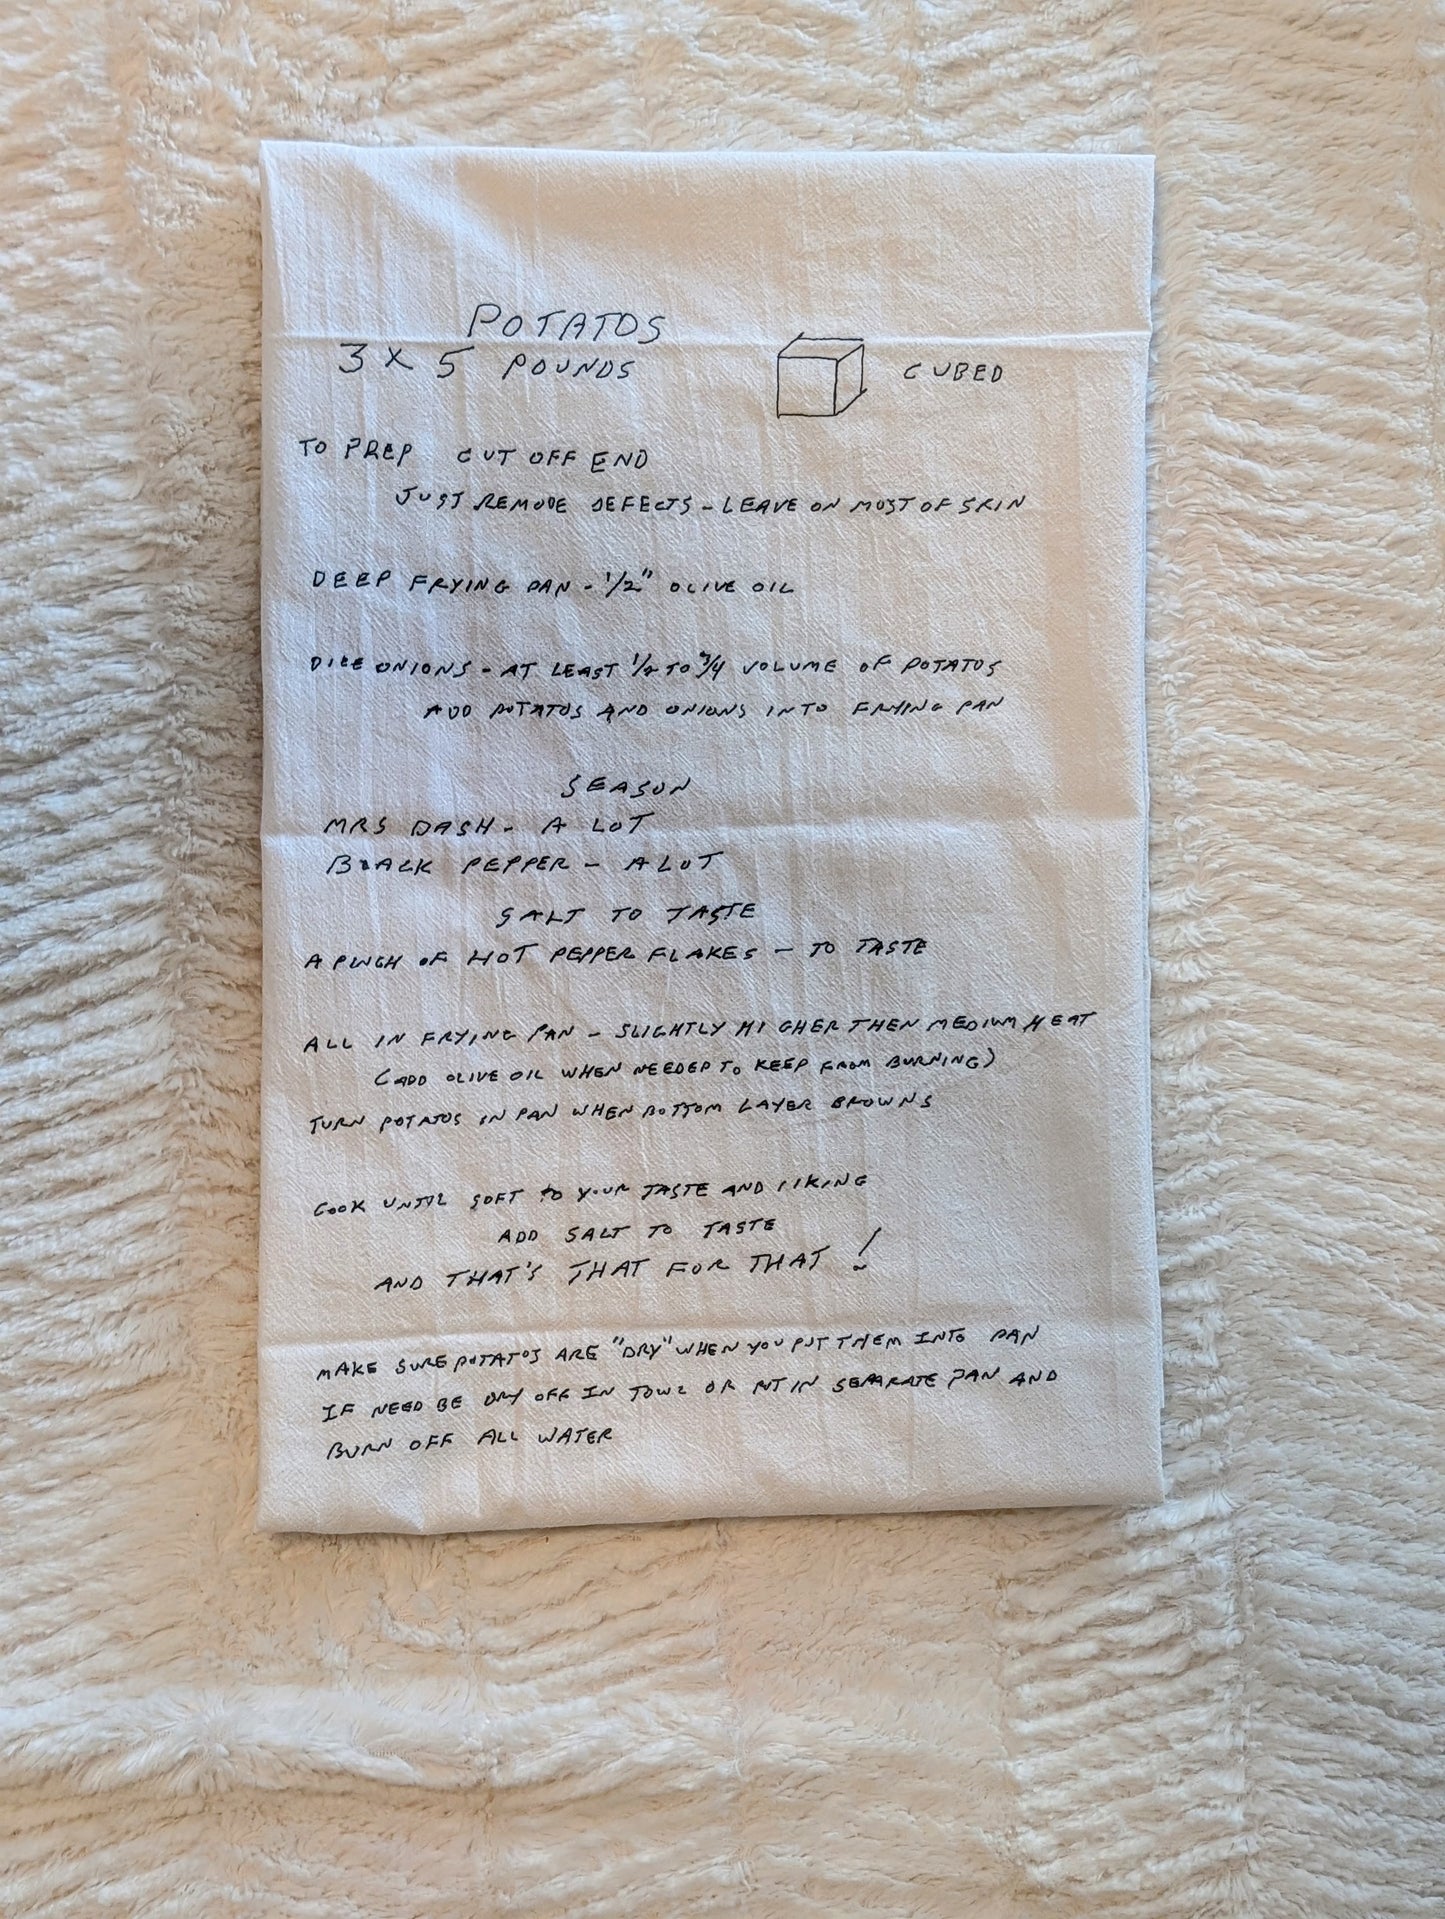 POTATOS
3 X 5 POUNDS
CUBED
TO PREP CUT OFF END
JUST REMOVE DEFECTS - LEAVE ON MOST OF SKIN
DEEP FRYING PAN - 1/2" OLIVE OIL
DICE ONIONS - AT LEAST 1/2 TO 3/4 VOLUME OF POTATOS
ADD POTATOS AND ONIONS INTO FRYING PAN
SEASON
MRS DASH - A LOT
BLACK PEPPER - A LOT
SALT TO TASTE
A PINCH OF HOT PEPPER FLAKES - TO TASTE
ALL IN FRYING PAN - SLIGHTLY HIGHER THEN MEDIUM HEAT
(ADD OLIVE OIL WHEN NEEDED TO KEEP FROM BURNING)
TURN POTATOS IN PAN WHEN BOTTOM LAYER BROWNS
COOK UNTIL SOFT TO YOUR TASTE AND LIKING
ADD SALT TO TASTE
AND THAT'S THAT FOR THAT !
MAKE SURE POTATOS ARE "DRY" WHEN YOU PUT THEM INTO PAN
IF NEED BE DRY OFF IN TOWL OR PUT IN SEPARATE PAN AND
BURN OFF ALL WATER